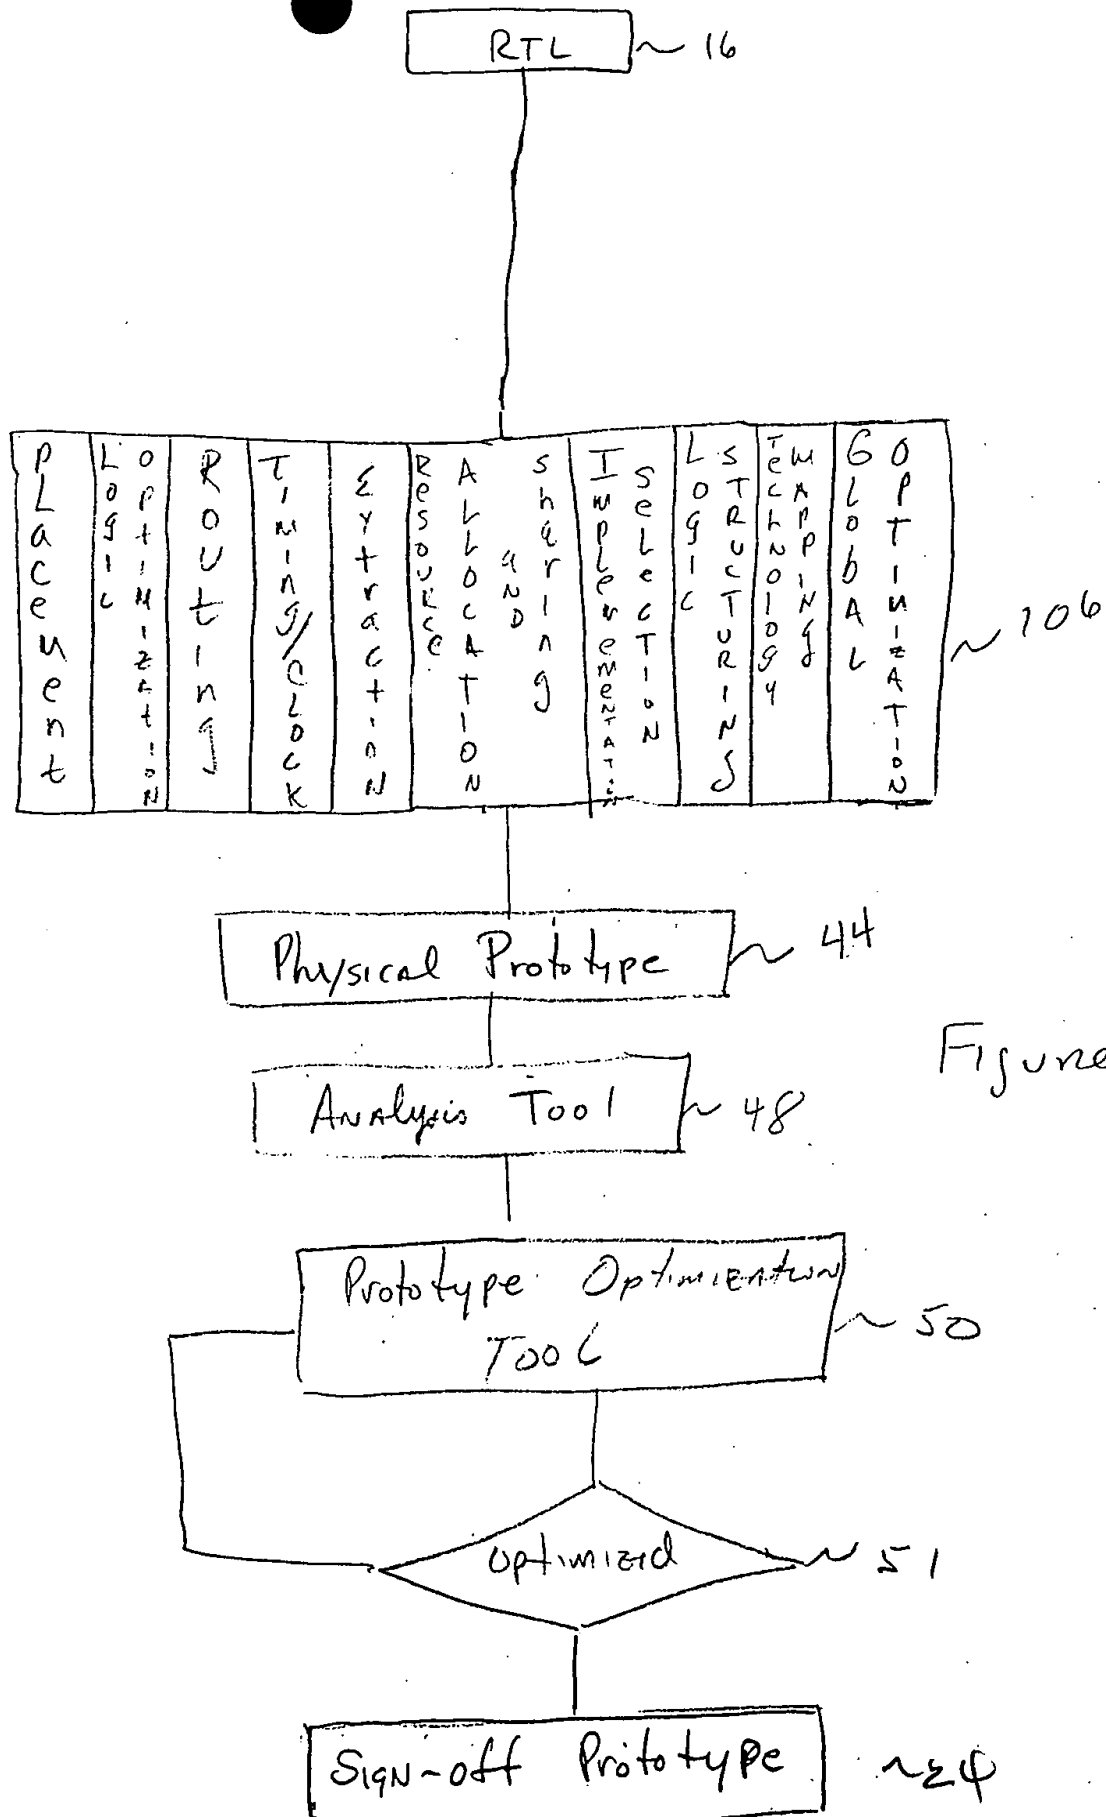 RTL ~ 16
Placement
Logic Optimization
Routing
Timing/Clock
Extraction
Resource Allocation and Sharing
Implementation Selection
Logic Structuring
Technology Mapping
Global Optimization
~ 106
Physical Prototype ~ 44
Figure
Analysis Tool ~ 48
Prototype Optimization
Tool
~ 50
Optimized ~ 51
Sign-off Prototype